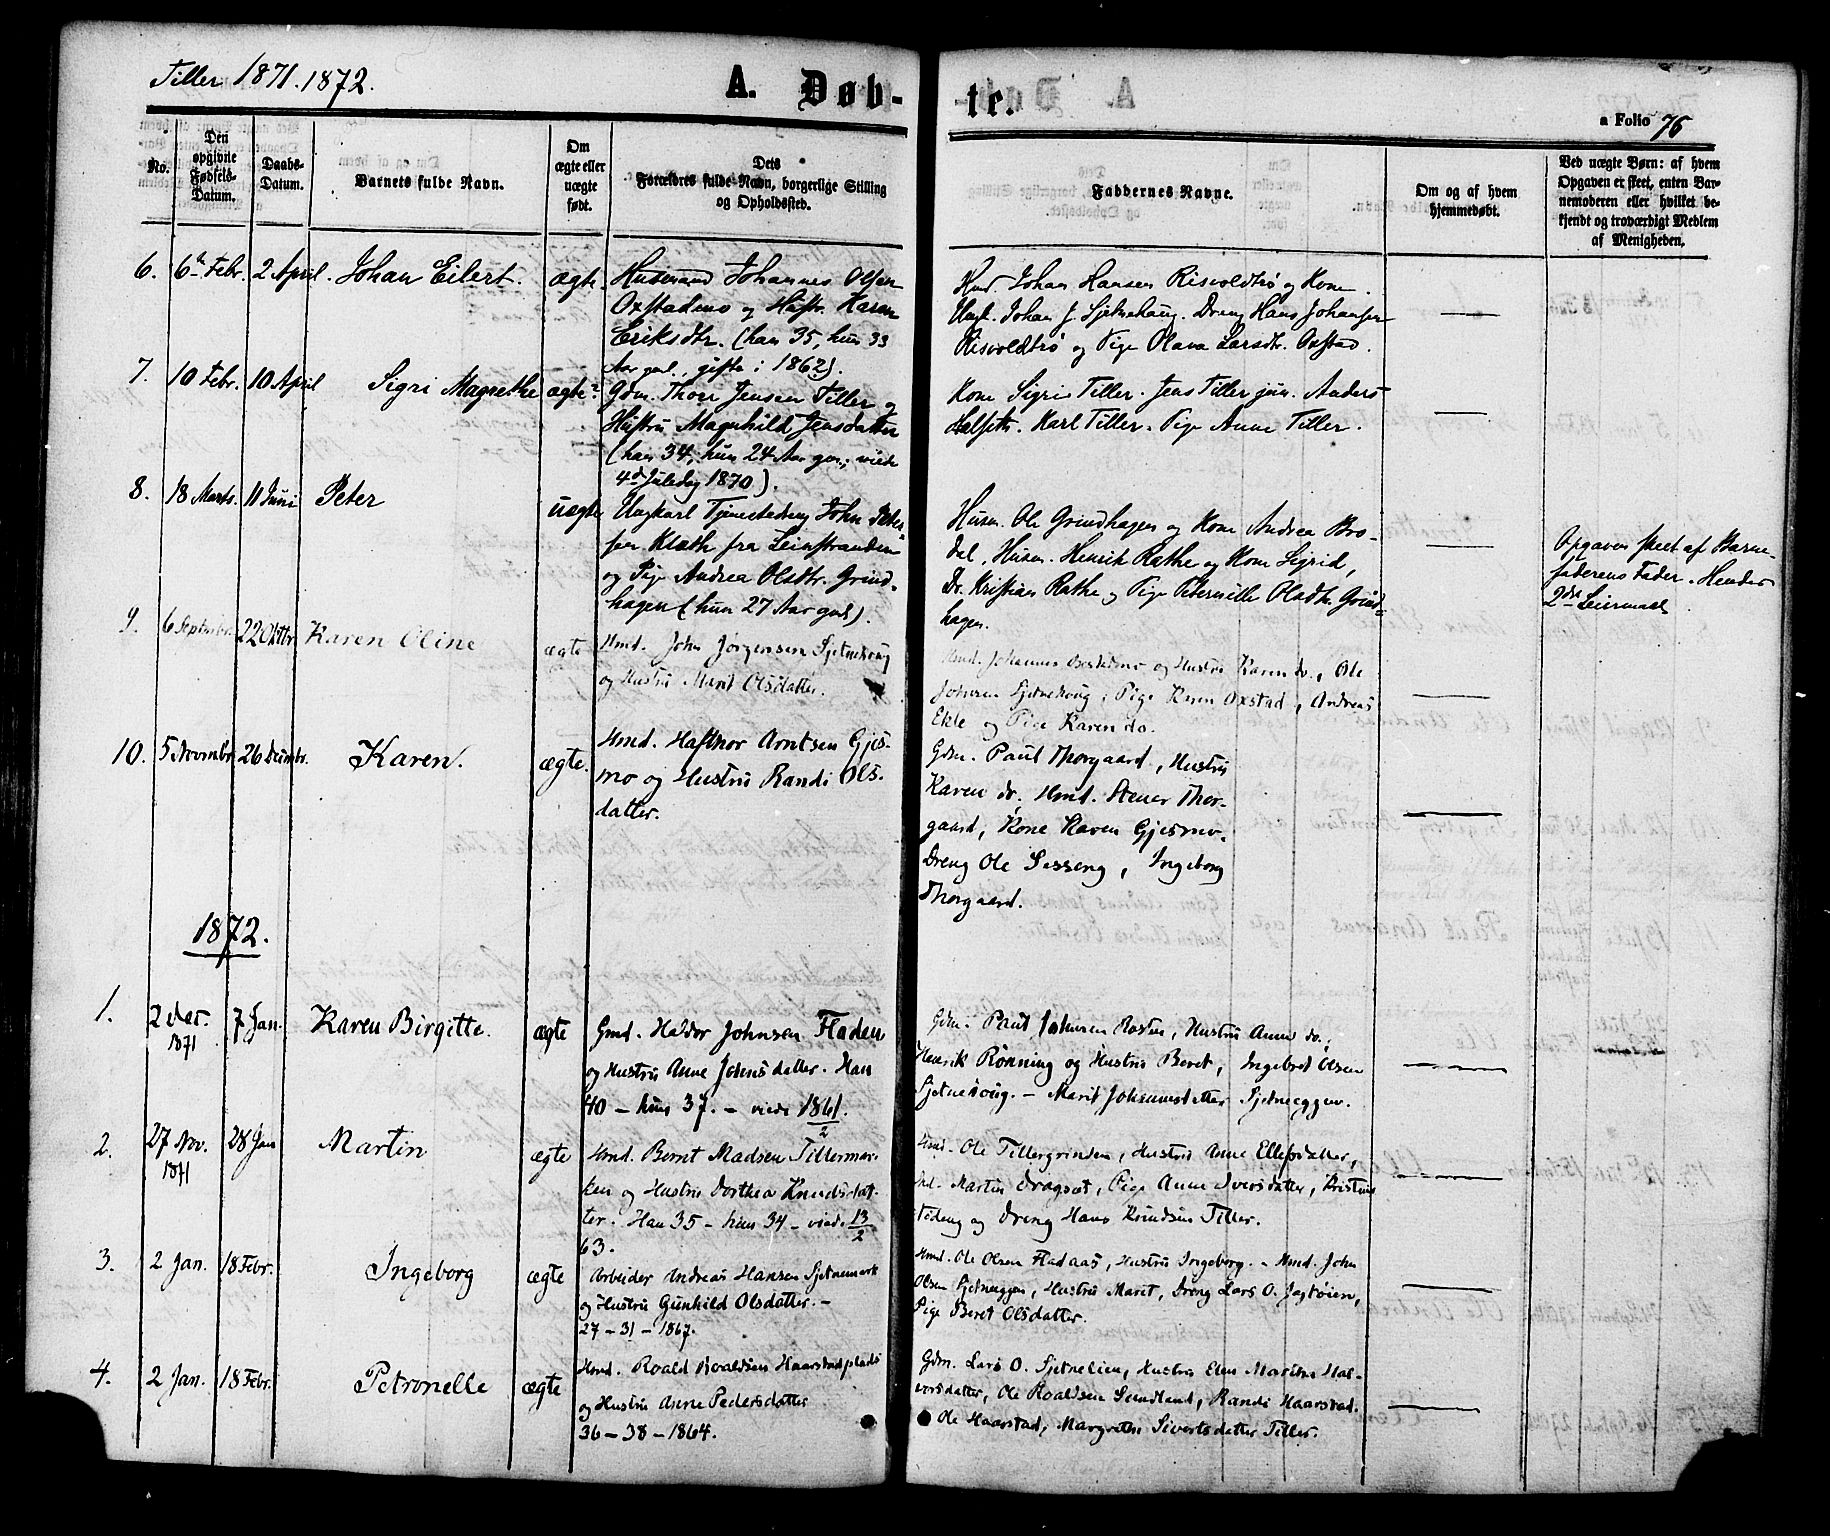 Tiller 1871. 1872.
A. Døb-
te.
a Folio 76
No.
Den opgivne Fødsels-Datum.
Daabs-Datum.
Barnets fulde Navn.
Om ægte eller uægte født.
Dets
Forældres fulde Navn, borgerlige Stilling
og Opholdssted.
Faddernes Navne.
Om og af hvem
hjemmedøbt.
Ved uægte Børn: af hvem
Opgaven er skeet, enten Bar-
nemoderen eller hvilket be-
kjendt og troværdigt Medlem
af Menigheden.
6. 6te Febr. 2 April. Johan Eilert. ægte.
Husmand Johannes Olsen
Oxstadmo og Hustr. Karen
Eriksdtr. (han 35, hun 33
Aar gml., gifte i 1862).
Hus Johan Hansen Risvoldtrø og Kone.
Ungk. Johan J. Sjetnehaug. Dreng Hans Johansen
Risvoldtrø og Pige Olava Larsdtr. Oxstad.
7. 10 Febr. 10 April Sigri Magrethe ægte
Gdm. Thoer Jensen Tiller og
Hustru Magnhild Jensdatter
(han 34, hun 24 Aar gm; viede
4de Juledag 1870).
Kone Sigri Tiller. Jens Tiller jun. Anders
Halseth. Karl Tiller. Pige Anne Tiller.
8. 18 Marts. 11 Juni Peter uægte
Ungkarl Tjenestedreng John Peter-
sen Klæth fra Leinstranden
og Pige Andrea Olsdtr. Grind-
hagen (hun 27 Aar gml).
Husm. Ole Grindhagen og Kone Andrea Bro-
dal, Husm. Henrik Rathe og Kone Sigrid,
Dr. Kristian Rathe og Pige Peternille Olsdtr. Grind-
hagen.
Opgaven skeet af Barne-
faderens Fader. Hendes
2det Leiermaal
9. 6 Septmbr. 22 Oktbr Karen Oline ægte
Hmd. John Jørgensen Sjetnehaug
og Hustru Marit Olsdatter.
Hmd. Johannes Oxstadmo og Hustru Karen do., Ole
Johnsen Sjetnehaug, Pige Karen Oxstad, Andreas
Ekle og Pige Karen do.
10. 5 Novmbr. 26 Decmbr. Karen. ægte.
Hmd. Haftnor Arntsen Gjes-
mo og Hustru Randi Ols-
datter.
Gdm. Paul Thorgaard, Hustru
Karen do, Hmd. Stener Thor-
gaard, Kone Karen Gjesmo.
Dreng Ole Sesseng, Ingeborg
Thorgaard.
1872.
1. 2 Dec. 1871 7 Jan. Karen Birgitte. ægte
Gmd. Haldor Johnsen Fladen
og Hustru Anne Johnsdatter. Han
40 – hun 37. – viede 1861.
2
Gdm. Paul Johnsen Rosten, Hustru Anne do.,
Henrik Rønning og Hustru Beret, Ingebret Olsen
Sjetnehoug. – Marit Johannesdatter Sjetneeggen.
2. 27 Nov. 1871 28 Jan Martin ægte
Hmd. Bernt Madsen Tillermar-
ken og Hustru Dorthea Knudsdat-
ter. Han 35 – hun 34 – viede 13/2
63.
Hmd. Ole Tillergrinden, Hustru Anne Ellefsdatter,
Martin Dragset, Pige Anne Iversdatter,
og Dreng Hans Knudsen Tiller.
3. 2 Jan. 18 Febr. Ingeborg ægte
Arbeider Andreas Hansen Sjetnemark
og Hustru Gunhild Olsdatter. –
27 – 31 – 1867.
Hmd. Ole Olsen Fladaas, Hustru Ingeborg. – Hmd. John
Olsen Sjetneggen, Hustru Maret, Dreng Lars O. Jagtøien,
Pige Beret Olsdatter.
4. 2 Jan. 18 Febr. Petronelle ægte
Hmd. Roald Roaldsen Haarstadplads
og Hustru Anne Pedersdatter
36 – 38 – 1864.
Gdm. Lars O. Sjetnelien, Hustru Elen Martha Hal-
vorsdatter, Ole Roaldsen Sundland, Randi Haarstad.
Ole Haarstad, Margrethe Sivertsdatter Tiller.